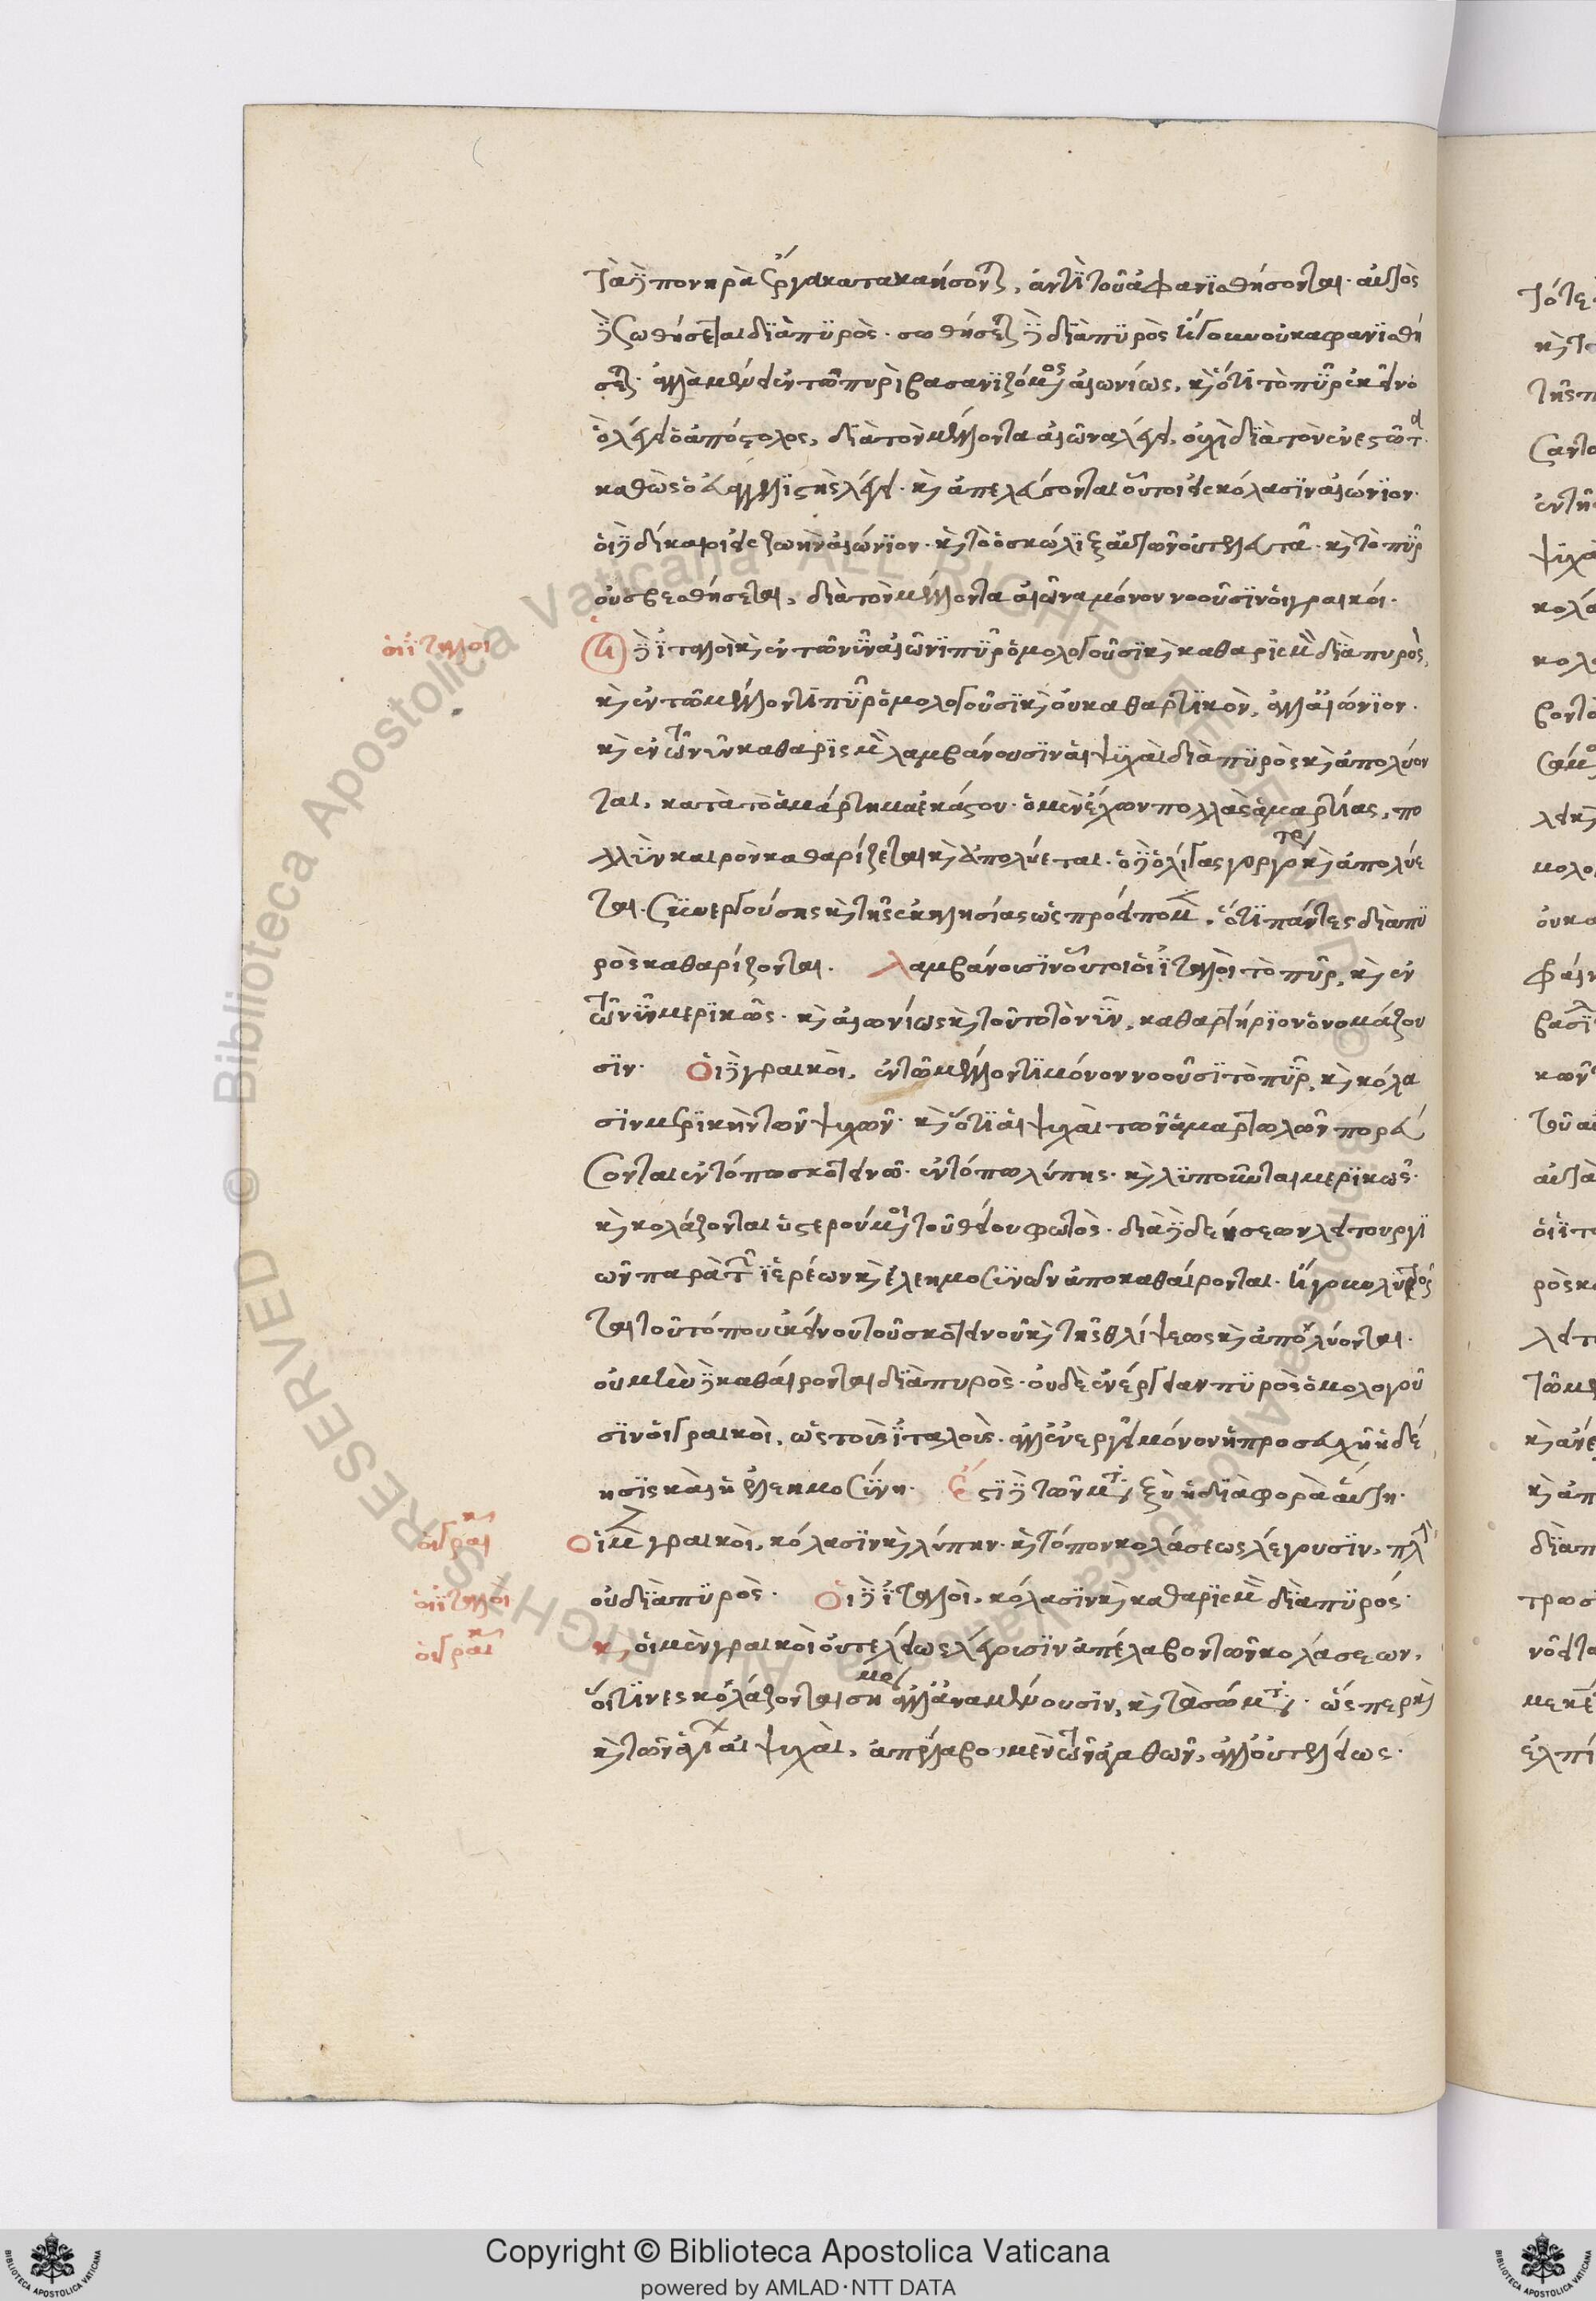 τὰ δὲ πονηρὰ ἔργα κατακαήσονται, ἀντὶ τοῦ ἀφανισθήσονται. αὐτὸς
δὲ σωθήσεται διὰ πυρὸς. σωθήσεται δὲ διὰ πυρὸς ἤγουν οὐκ ἀφανισθή
σεται. ἀλλὰ μένει ἐν τῶ πυρὶ βασανιζόμενος αἰωνίως, καὶ ὅτι τὸ πῦρ ἐκεῖνο
ὃ λέγει ὁ ἀπόστολος, διὰ τὸν μέλλοντα αἰῶνα λέγει, οὐχὶ διὰ τὸν ἐνεστῶτα.
καθὼς ὁ εὐαγγελιστὴς λέγει. καὶ ἀπελεύσονται οὗτοι εἰς κόλασιν αἰώνιον.
οἱ δὲ δίκαιοι εἰς ζωὴν αἰώνιον. καὶ τὸ ὁ σκώληξ αὐτῶν οὐ τελευτᾶ. καὶ τὸ πῦρ
οὐ σβεσθήσεται, διὰ τὸν μέλλοντα αἰῶνα μόνον νοοῦσιν οἱ γραικοί.
οἱ ἰταλοὶ
Οἱ δὲ ἰταλοὶ καὶ ἐν τῶ νῦν αἰῶνι πῦρ ὁμολογοῦσι καὶ καθαρισμὸν διὰ πυρὸς,
καὶ ἐν τῶ μέλλοντι πῦρ ὁμολογοῦσι καὶ οὐ καθαρτικὸν, ἀλλ' αἰώνιον.
καὶ ἐν τῶ νῦν καθαρισμὸν λαμβάνουσιν αἱ ψυχαὶ διὰ πυρὸς καὶ ἀπολύον
ται, κατὰ τὸ ἁμάρτημα ἑκάστου. ὁ μὲν ἔχων πολλὰς ἁμαρτίας, πο
λὺν καιρὸν καθαρίζεται καὶ ἀπολύεται. ὁ δὲ ὀλίγας γοργότερον καὶ ἀπολύε
ται. συνεργούσης καὶ τῆς ἐκκλησίας ὡς προείπομεν. ὅτι πάντες διὰ πυ
ρὸς καθαρίζονται. Λαμβάνουσιν οὗτοι οἱ ἰταλοὶ τὸ πῦρ, καὶ ἐν
τῶ νῦν μερικῶς. καὶ αἰωνίως καὶ τοῦτο τὸ νῦν, καθαρτήριον ὀνομάζου
σιν. Οἱ δὲ γραικοὶ, ἐν τῶ μέλλοντι μόνον νοοῦσι τὸ πῦρ, καὶ κόλα
σιν μερικὴν τῶν ψυχῶν. καὶ ὅτι αἱ ψυχαὶ τῶν ἁμαρτωλῶν πορεύ
σονται ἐν τόπω σκοτεινῶ. ἐν τόπω λύπης. καὶ λυποῦνται μερικῶς.
καὶ κολάζονται ὑστερούμενοι τοῦ θείου φωτὸς. διὰ δὲ δεήσεων λειτουργι
ῶν παρὰ τῶν ἱερέων καὶ ἐλεημοσυνῶν ἀποκαθαίρονται. ἤγουν λυτροῦν
ται τοῦ τόπου ἐκείνου τοῦ σκοτεινοῦ καὶ τῆς θλίψεως καὶ ἀπολύονται.
οὐ μὲν δὲ καθαίρονται διὰ πυρὸς. οὐδὲ ἐνέργειαν πυρὸς ὁμολογοῦ
σιν οἱ γραικοὶ, ὡς τοῖς ἰταλοῖς. ἀλλ' ἐνεργεῖ μόνον ἡ προσευχὴ ἡ δέ
ησις καὶ ἡ ἐλεημοσύνη. Ἔστι δὲ τῶν μεταξὺ ἡ διαφορὰ αὕτη.
οἱ γραικοὶ
Οἱ μὲν γραικοὶ, κόλασιν καὶ λύπην. καὶ τόπον κολάσεως λέγουσιν, πλὴν
οἱ ἰταλοὶ
οὐ διὰ πυρὸς. Οἱ δὲ ἰταλοὶ, κόλασιν καὶ καθαρισμὸν διὰ πυρός.
οἱ γραικοὶ
καὶ οἱ μὲν γραικοὶ οὐ τελείως λέγουσιν ἀπέλαβον τῶν κολάσεων,
οἵτινες κολάζονται σήμερον ἀλλ' ἀναμένουσιν, καὶ τὰ σώματα. ὥσπερ καὶ
καὶ τῶν ἁγίων αἱ ψυχαὶ, ἀπέλαβον μὲν τῶν ἀγαθῶν, ἀλλ' οὐ τελείως.